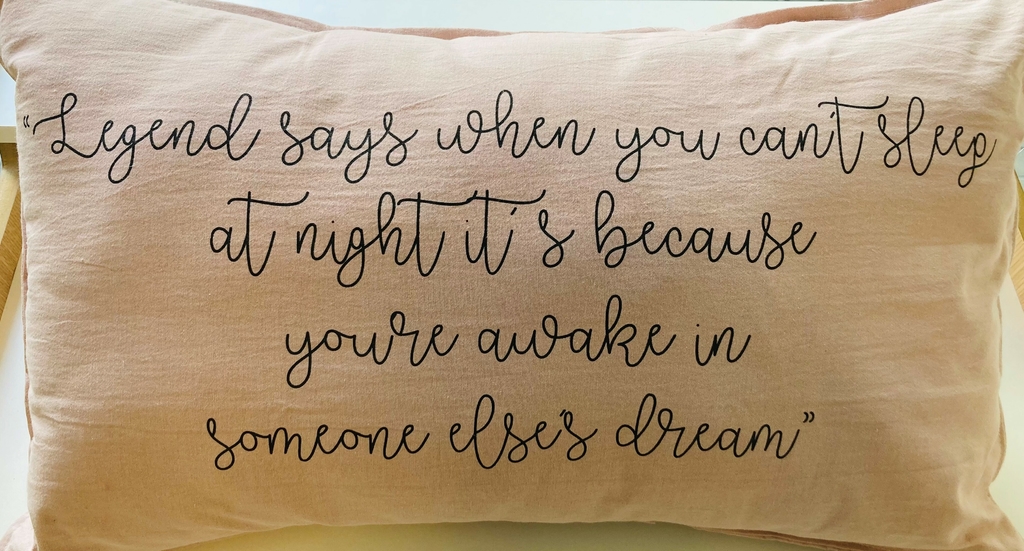 “Legend says when you can't sleep
at night it's because
you're awake in
someone else's dream”